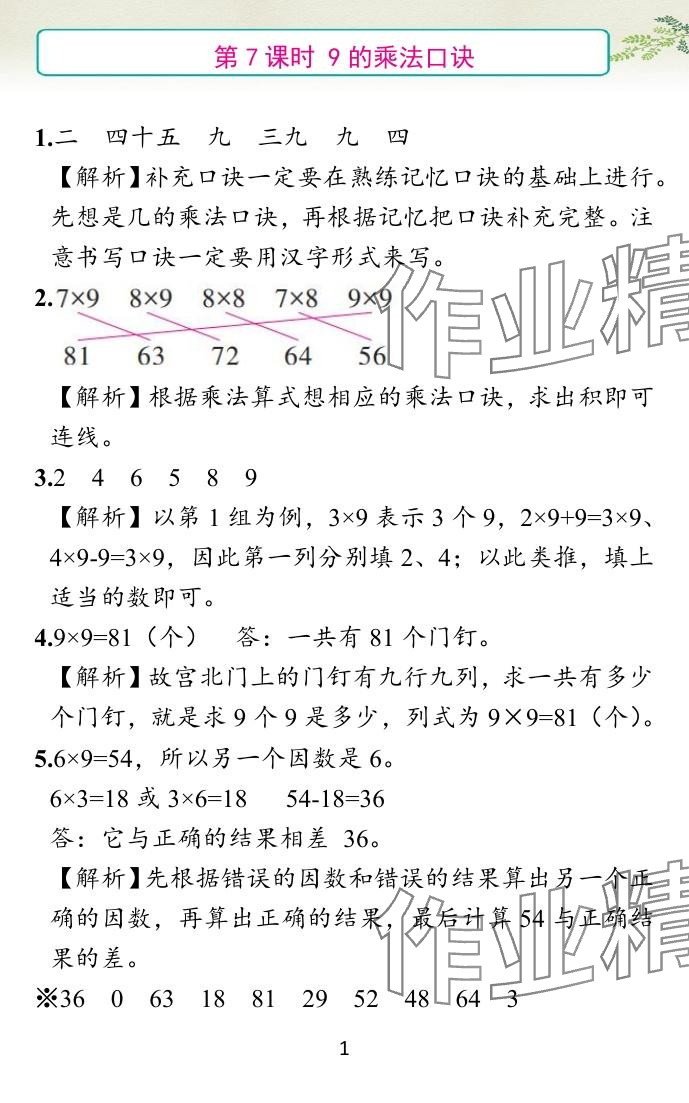 第 7 课时 9 的乘法口诀
1.二 四十五 九 三九 九 四
【解析】补充口诀一定要在熟练记忆口诀的基础上进行。
先想是几的乘法口诀，再根据记忆把口诀补充完整。注
意书写口诀一定要用汉字形式来写。
2.7×9 8×9 8×8 7×8 9×9
81 63 72 64 56
【解析】根据乘法算式想相应的乘法口诀，求出积即可
连线。
3.2 4 6 5 8 9
【解析】以第 1 组为例，3×9 表示 3 个 9，2×9+9=3×9、
4×9-9=3×9，因此第一列分别填 2、4；以此类推，填上
适当的数即可。
4.9×9=81（个） 答：一共有 81 个门钉。
【解析】故宫北门上的门钉有九行九列，求一共有多少
个门钉，就是求 9 个 9 是多少，列式为 9×9=81（个）。
5.6×9=54，所以另一个因数是 6。
6×3=18 或 3×6=18 54-18=36
答：它与正确的结果相差 36。
【解析】先根据错误的因数和错误的结果算出另一个正
确的因数，再算出正确的结果，最后计算 54 与正确结
果的差。
※36 0 63 18 81 29 52 48 64 3
1
作业精
作业精